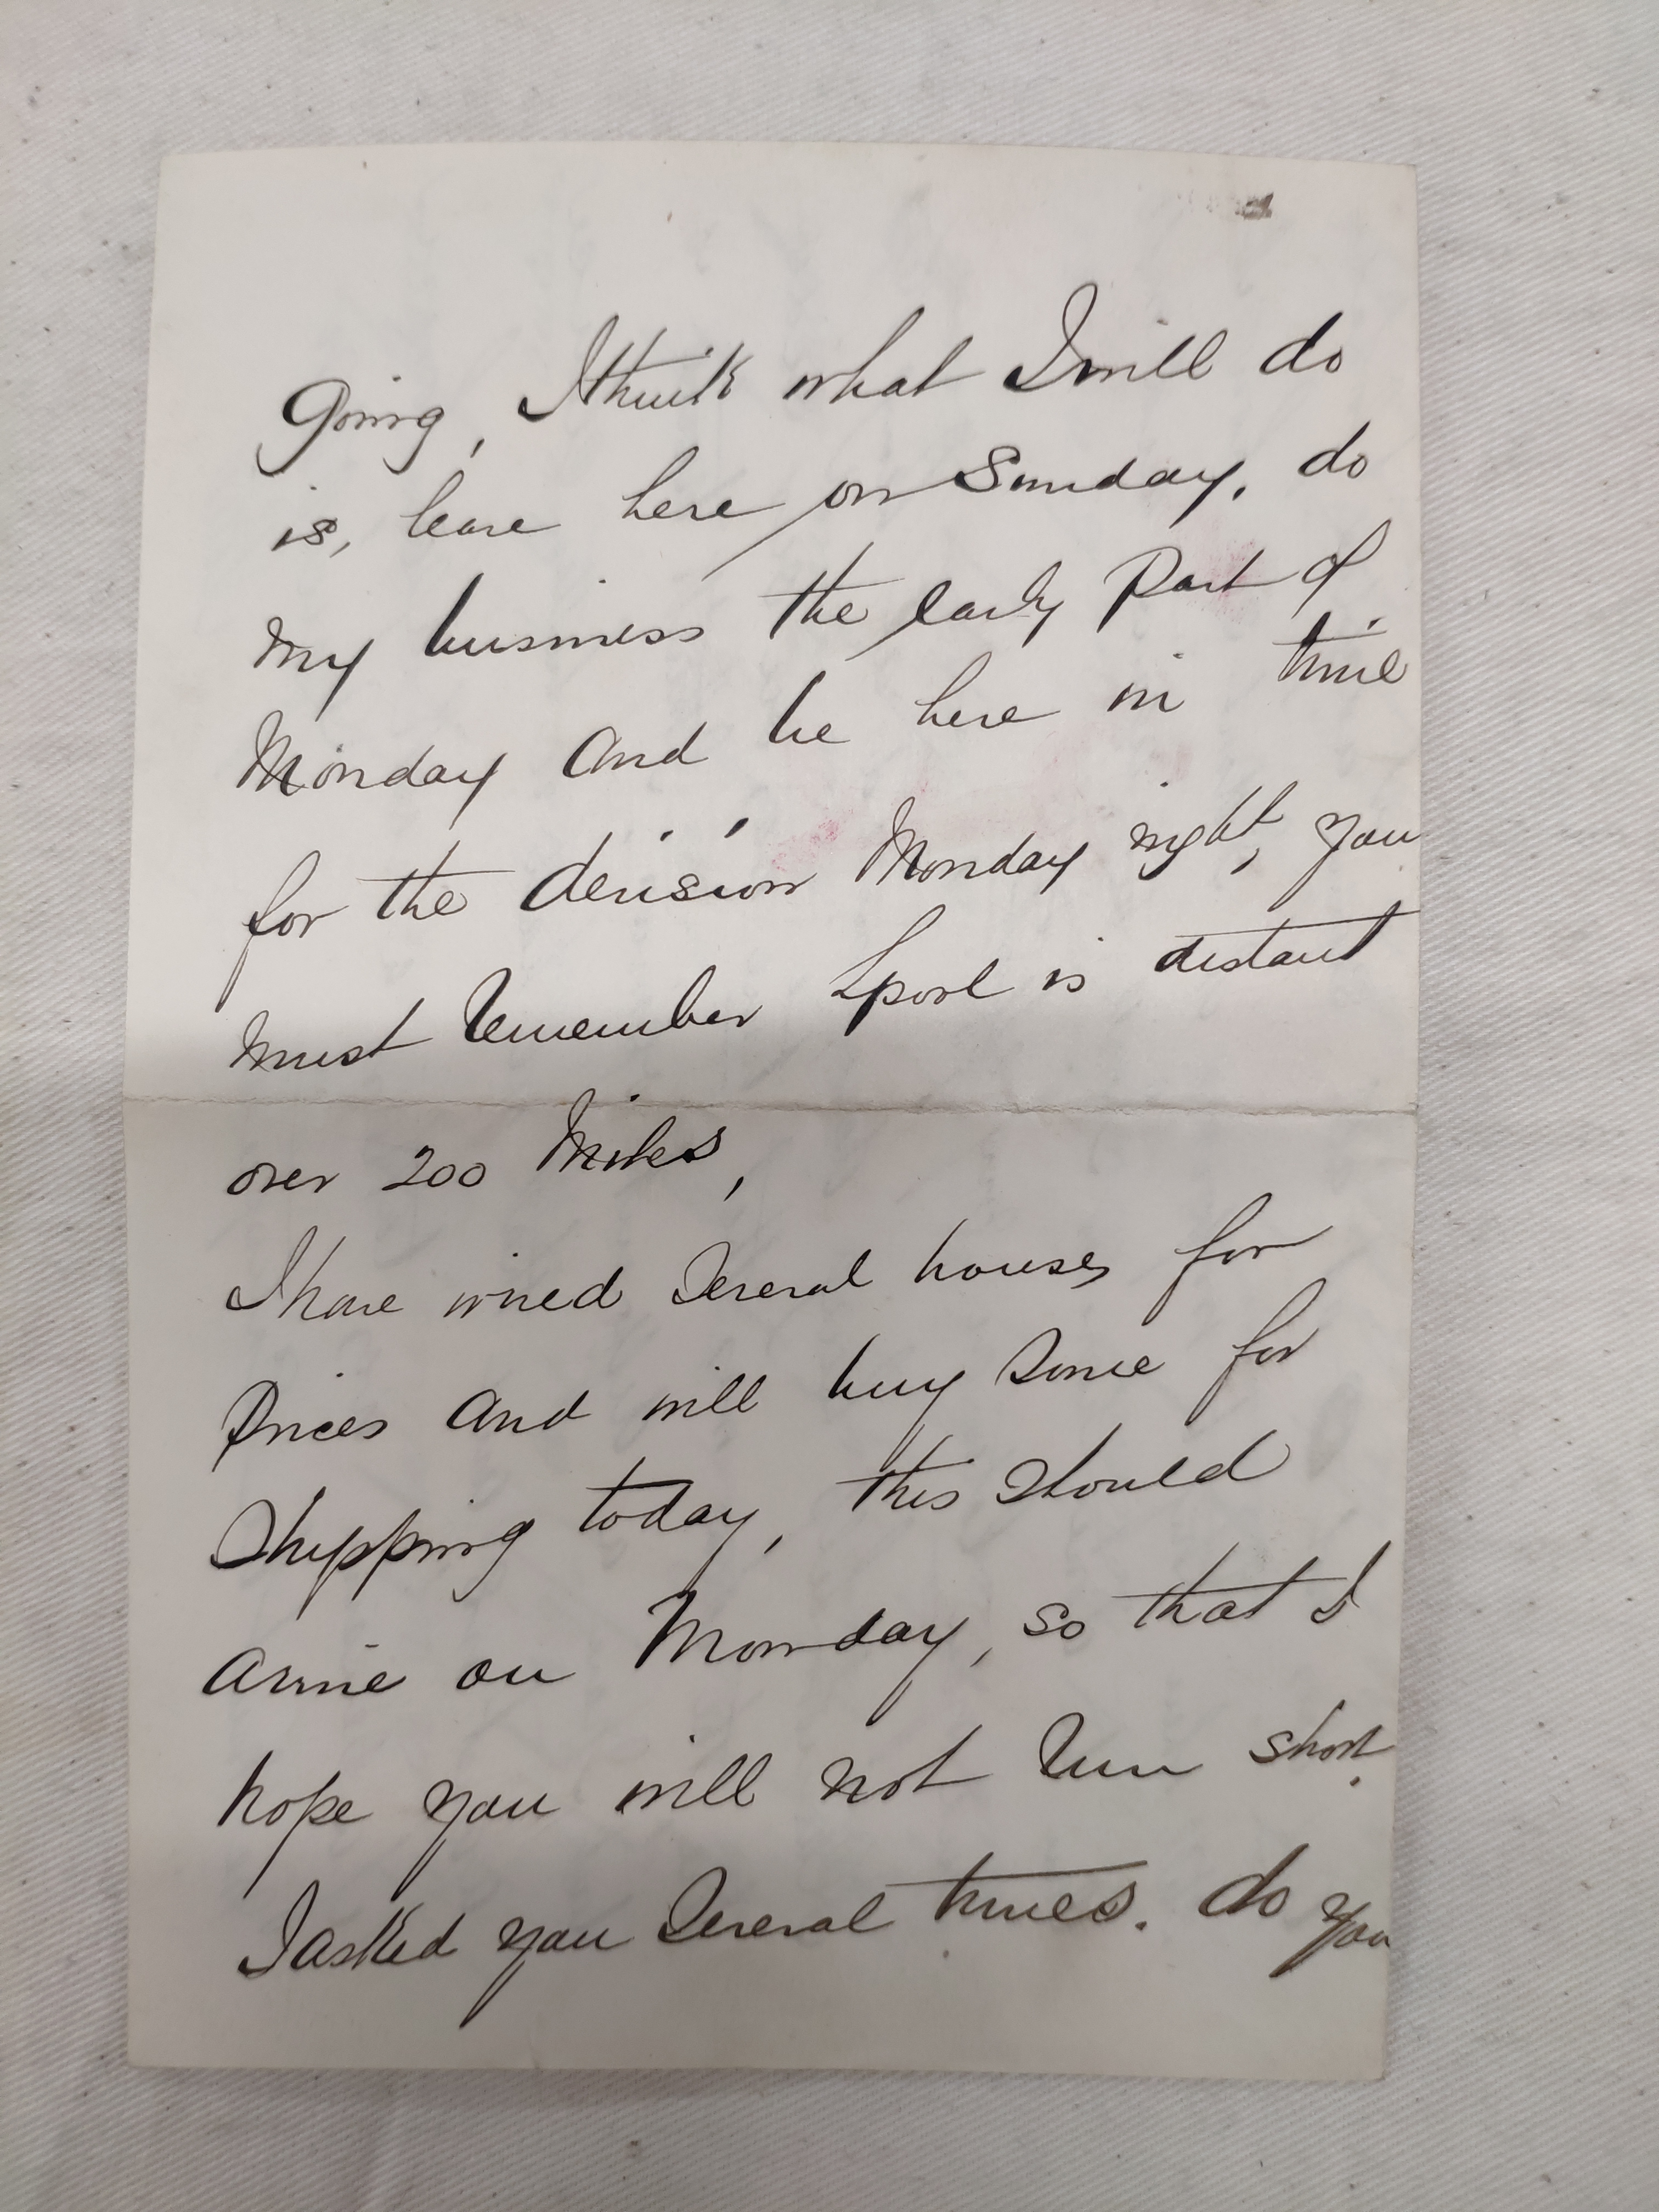 Going, I think what I will do
is, leave here on Sunday, do
my business the early Part of
Monday and be here in time
for the decision Monday night, you
must remember Lpool is distant
over 200 Miles,
I have wired Several houses for
Prices and will buy Some for
Shipping today, this Should
arrive on Monday, so that I
hope you will not run short.
I asked you Several times. do you